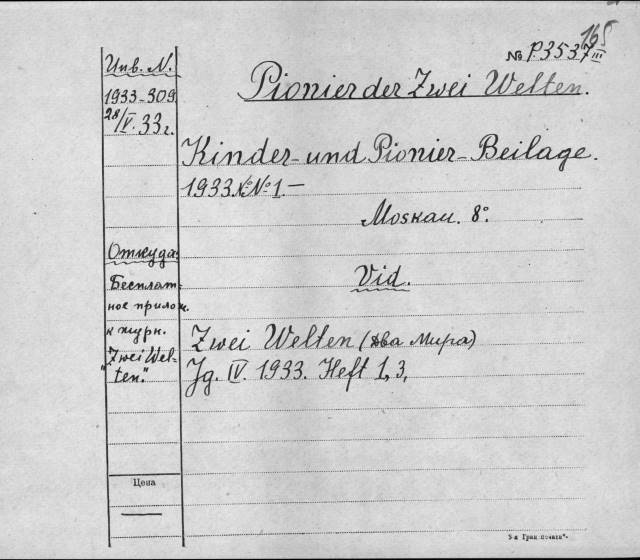 165
№ P.3537 III
Инв. N.
1933-309
28/V.33 г.
Pionier der Zwei Welten.
Kinder- und Pionier-Beilage.
1933 № № 1.—
Moskau. 8°.
Откуда:
Бесплат-
ное прилож.
к журн.
"Zwei Wel-
ten."
Vid.
Zwei Welten (Два Мира)
Jg. IV. 1933. Heft 1, 3,
Цена
—